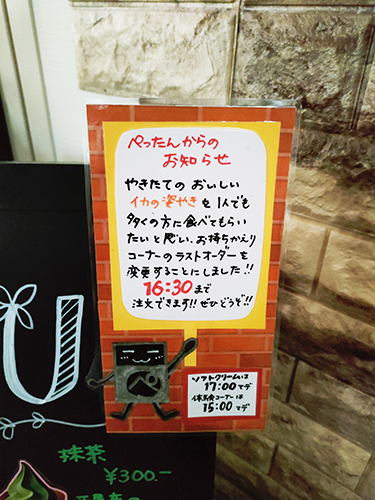 ぺったんからの
お知らせ
やきたての おいしい
イカの姿やき を 1人でも
多くの方に食べてもらい
たいと思い、お持ちかえり
コーナーのラストオーダーを
変更することにしました!!
16:30 まで
注文できます!! ぜひどうぞ!!
ぺ
ソフトクリームは
17:00 マデ
体験コーナーは
15:00 マデ
U
抹茶
¥300.-